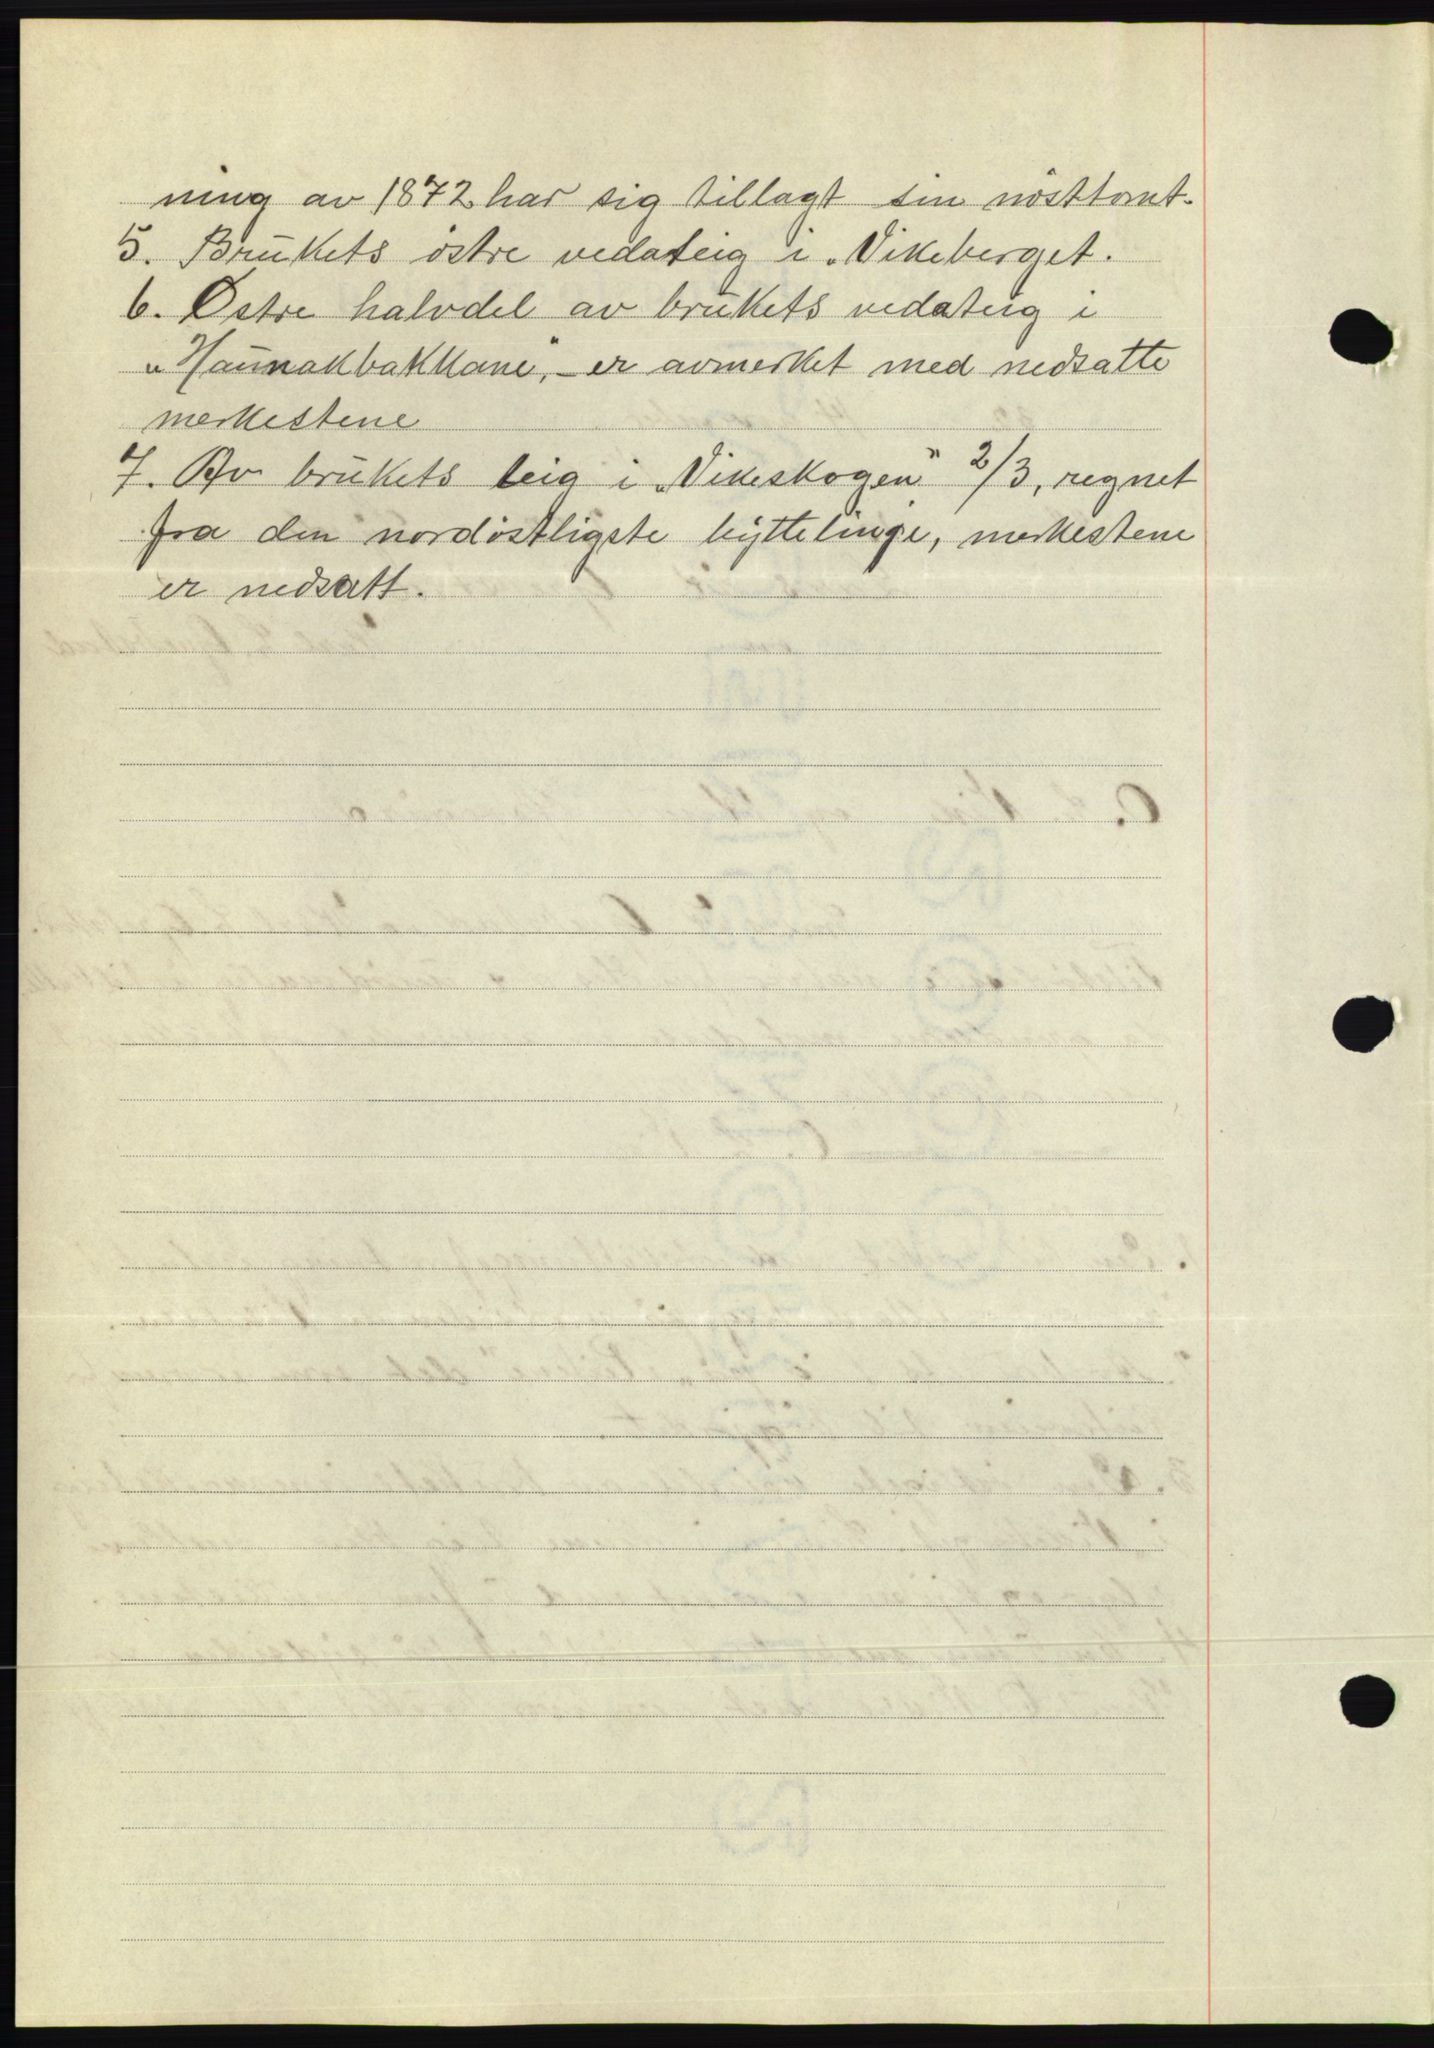 ning av 1872 har sig tillagt sin nösttomt.
5. Brukets östre vedateig i „Vikeberget.
6. Østre halvdel av brukets vedateig i
„Haunakbakkane", – er avmerket med nedsatte
merkestene
7. Av brukets teig i „Vikeskogen" 2/3, regnet
fra den nordöstligste byttelinje, merkestene
er nedsatt.